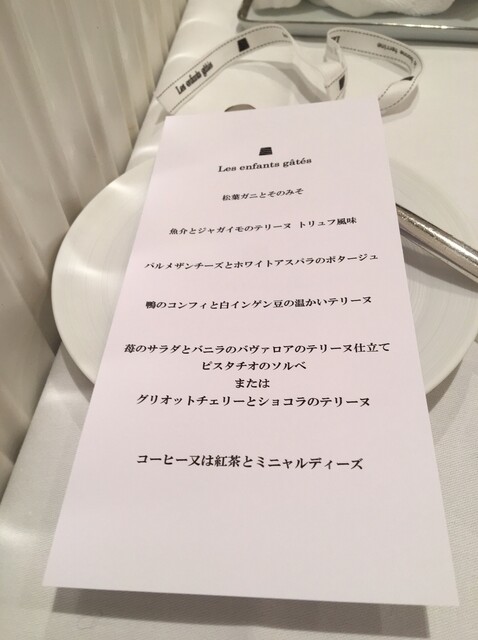 Les enfants gâtés
Les enfants gâtés
松葉ガニとそのみそ
魚介とジャガイモのテリーヌ トリュフ風味
パルメザンチーズとホワイトアスパラのポタージュ
鴨のコンフィと白インゲン豆の温かいテリーヌ
苺のサラダとバニラのバヴァロアのテリーヌ仕立て
ピスタチオのソルベ
または
グリオットチェリーとショコラのテリーヌ
コーヒー又は紅茶とミニャルディーズ